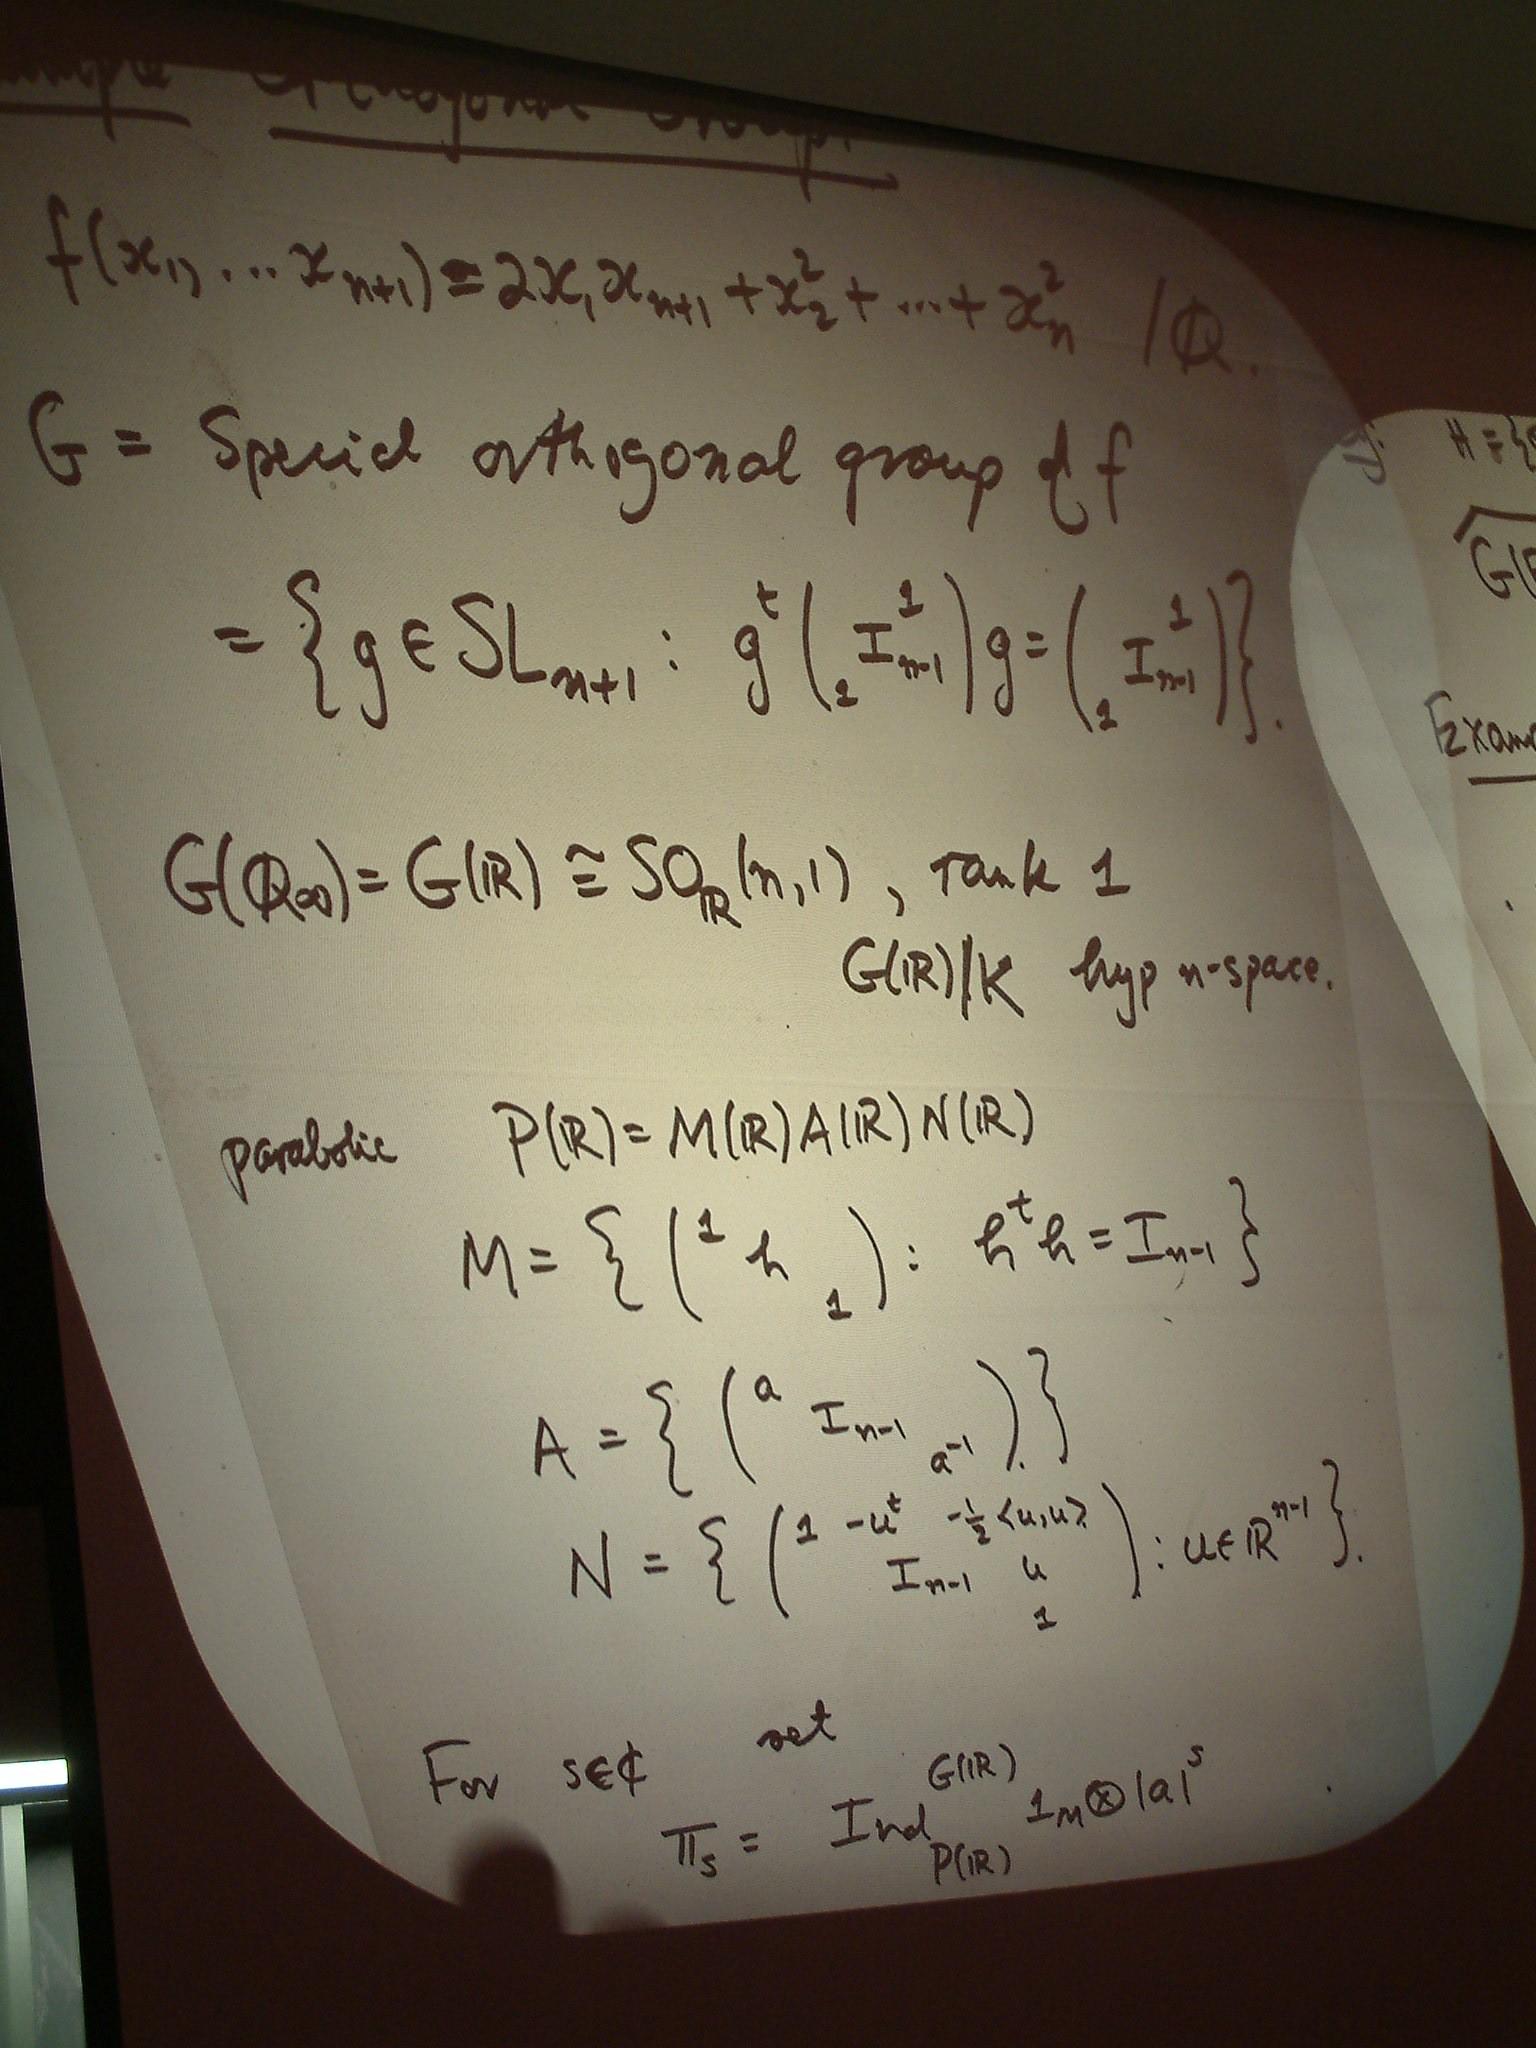 Orthogonal Group.
f(x₁, ... xₙ₊₁) = 2x₁xₙ₊₁ + x₂² + ... + xₙ² /ℚ.
G = Special orthogonal group of f
= {g ∈ SLₙ₊₁ : gᵗ( 1 Iₙ₋₁ 1 )g = ( 1 Iₙ₋₁ 1 )}.
G(ℚ∞) = G(ℝ) ≅ SO_ℝ(n,1), rank 1
G(ℝ)/K hyp n-space.
parabolic P(ℝ) = M(ℝ)A(ℝ)N(ℝ)
M = { ( 1 h 1 ) : hᵗh = Iₙ₋₁ }
A = { ( a Iₙ₋₁ a⁻¹ ) }
N = { ( 1 -uᵗ -½<u,u> Iₙ₋₁ u 1 ) : u ∈ ℝⁿ⁻¹ }.
For s∈ℂ set
π_s = Ind_P(ℝ)^G(ℝ) 1_M ⊗ |a|^s
H = {